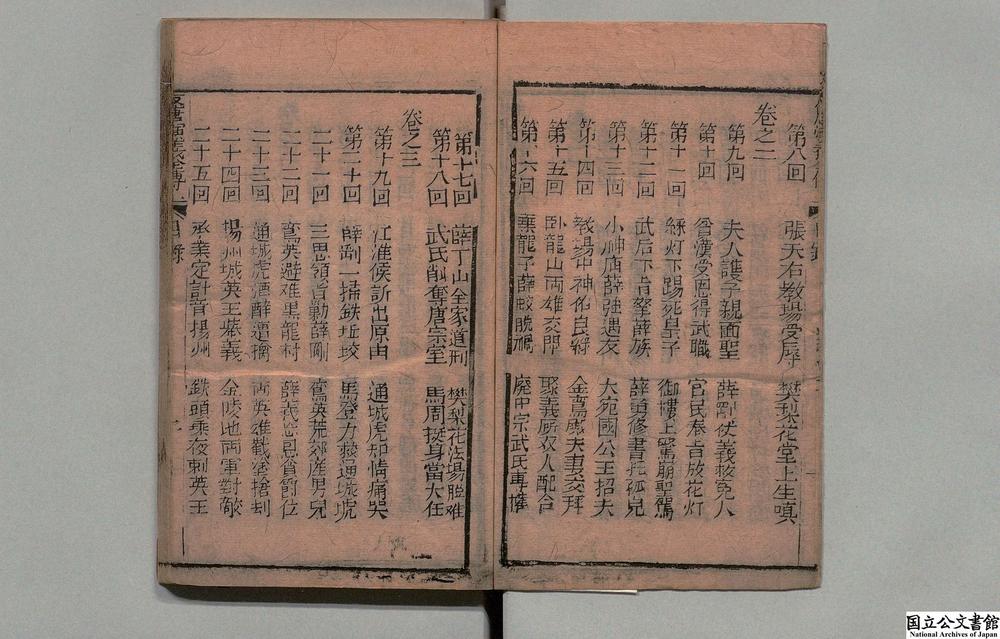 第八回 張天右教場受辱 樊梨花堂上生嗔
卷之二
第九回 夫人護子親面聖 薛剛仗義救冤人
第十回 曾漢受恩得武職 官民奉旨放花灯
第十一回 綵灯下踢死皇子 御樓上驚崩聖駕
第十二回 武后下旨拏薛族 薛勇修書托孤兒
第十三回 小神廟薛強遇友 大宛國公主招夫
第十四回 教場中神化良緣 金鸞殿夫妻交拜
第十五回 臥龍山両雄交即 聚義廳衆人配合
第十六回 薛蛟脫禍 廢中宗武氏專權
第十七回 薛丁山全家遭刑 樊梨花法場脫难
第十八回 武氏削奪唐宗室 馬周挺身當大任
卷之三
第十九回 江淮侯訴出原由 通城虎知情痛哭
第二十回 薛剛一掃鉄坵坟 馬登力救通城虎
二十一回 三思領旨勦薛剛 鸞英荒郊產男兒
二十二回 鸞英避难黒龍村 薛義忘恩貪爵位
二十三回 通城虎酒醉遭擒 両英雄截路搶刦
二十四回 揚州城英王舉義 金陵地両軍對敵
二十五回 承業定計費揚州 鉄頭乘夜刺英王
目錄
国立公文書館
National Archives of Japan